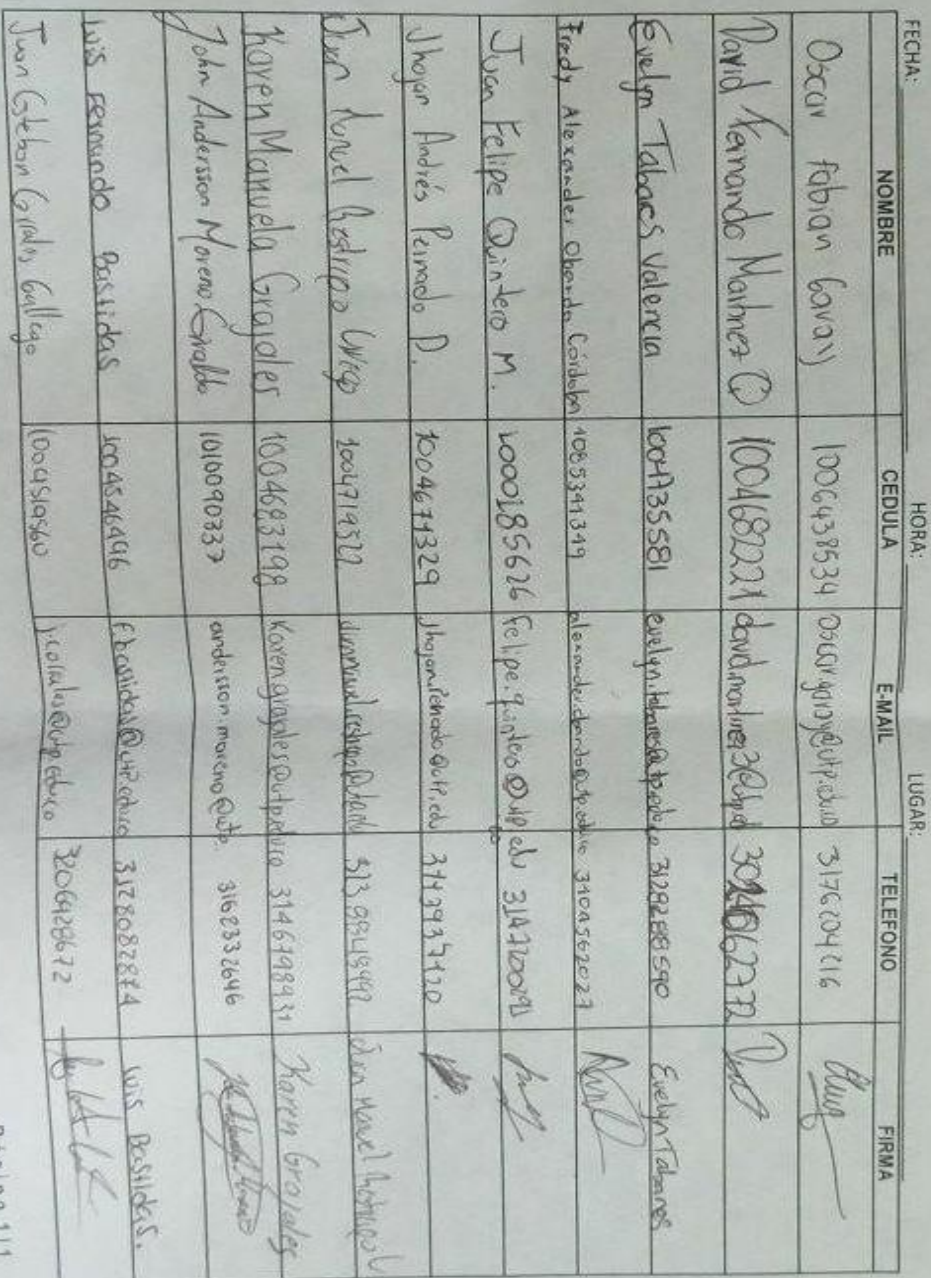 FECHA: HORA: LUGAR:
NOMBRE CEDULA E-MAIL TELEFONO FIRMA
Oscar Fabian Garay 1006438534 oscar.garay@utp.edu.co 3176204216
David Fernando Martinez Q 1004682221 david.martinez3@utp.ed 3024062772
Evelyn Tabares Valencia 1004735581 evelyn.tabares@utp.edu.co 3128288590 Evelyn Tabares
Fredy Alexander Obando Córdoba 1085341349 alexander.obando@utp.edu.co 3104562027
Juan Felipe Quintero M. 1000185626 felipe.quintero@utp.edu 3147200191
Jhojan Andrés Peinado D. 1004671329 jhojan.peinado@utp.edu 3147937120
Juan Manuel Restrepo 1004719522 juanmanuel.restrepo@utp.edu 313
Karen Manuela Grajales 1004683198 karen.grajales@utp.edu.co 3146798931 Karen Grajales
John Andersson Moreno Giraldo 1010090337 andersson.moreno@utp. 3162332646
Luis Fernando Bastidas 1004546496 @utp.edu.co 3128082874 Luis Bastidas.
Juan Esteban Gallego 1004519560 @utp.edu.co 3206428672
Página 1/1